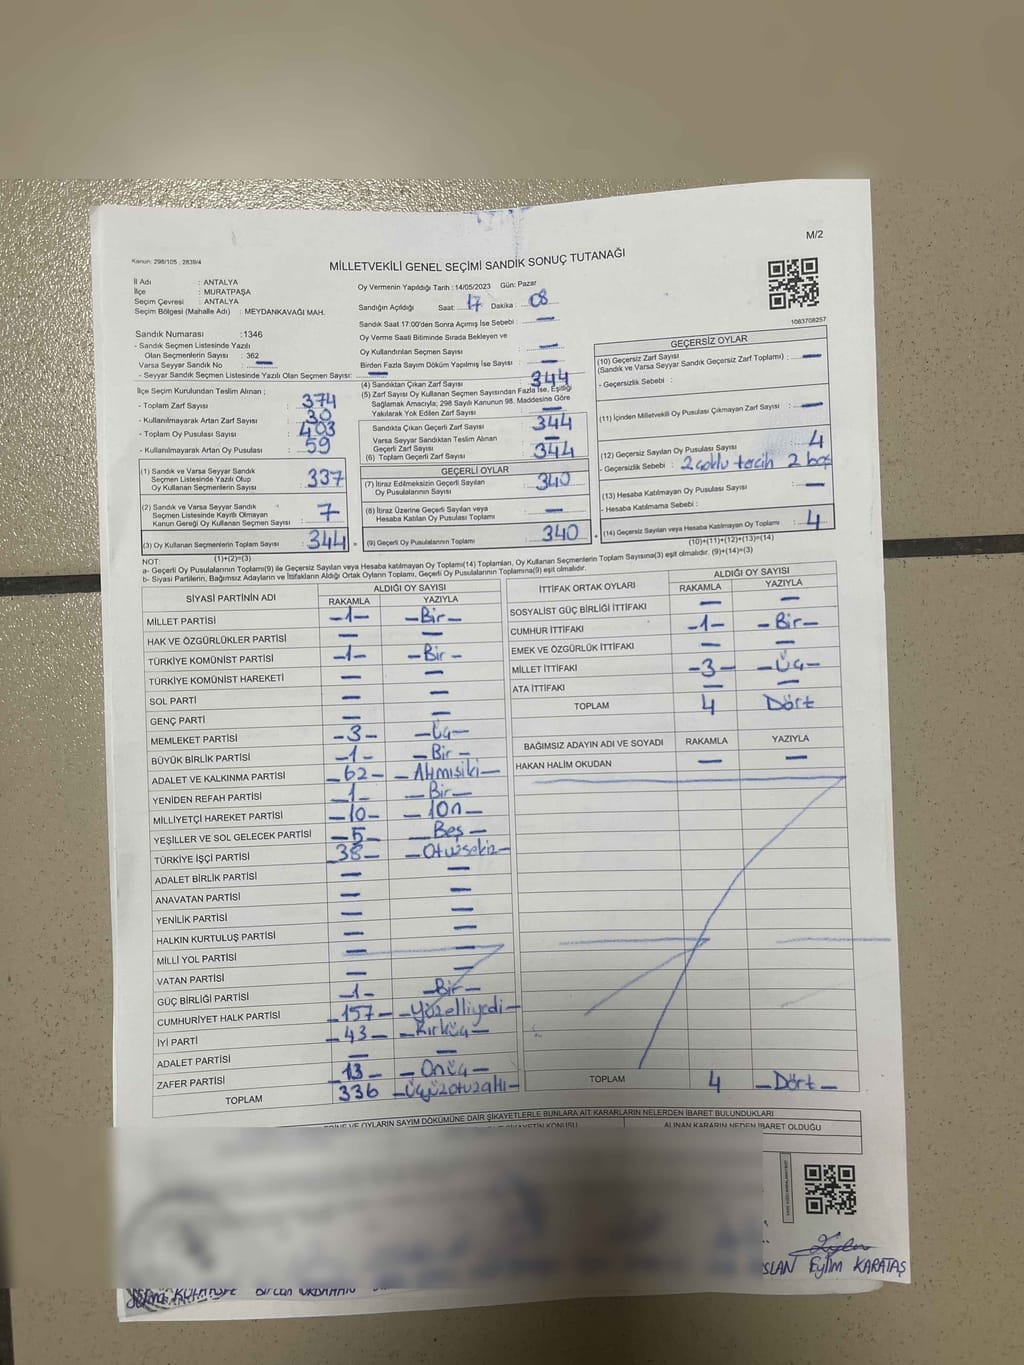 M/2
Kanun: 298/105 , 2839/4
MİLLETVEKİLİ GENEL SEÇİMİ SANDIK SONUÇ TUTANAĞI
İl Adı : ANTALYA
İlçe : MURATPAŞA
Seçim Çevresi : ANTALYA
Seçim Bölgesi (Mahalle Adı) : MEYDANKAVAĞI MAH.
Sandık Numarası :1346
- Sandık Seçmen Listesinde Yazılı
Olan Seçmenlerin Sayısı : 362
Varsa Seyyar Sandık No —
- Seyyar Sandık Seçmen Listesinde Yazılı Olan Seçmen Sayısı: —
İlçe Seçim Kurulundan Teslim Alınan ;
- Toplam Zarf Sayısı : 374
- Kullanılmayarak Artan Zarf Sayısı : 30
- Toplam Oy Pusulası Sayısı : 403
- Kullanılmayarak Artan Oy Pusulası : 59
(1) Sandık ve Varsa Seyyar Sandık
Seçmen Listesinde Yazılı Olup
Oy Kullanan Seçmenlerin Sayısı : 337
(2) Sandık ve Varsa Seyyar Sandık
Seçmen Listesinde Kayıtlı Olmayan
Kanun Gereği Oy Kullanan Seçmen Sayısı : 7
(3) Oy Kullanan Seçmenlerin Toplam Sayısı : 344
(1)+(2)=(3)
Oy Vermenin Yapıldığı Tarih : 14/05/2023 Gün: Pazar
Sandığın Açıldığı Saat: 17 Dakika : 08
Sandık Saat 17:00'den Sonra Açılmış İse Sebebi : —
Oy Verme Saati Bitiminde Sırada Bekleyen ve
Oy Kullandırılan Seçmen Sayısı : —
Birden Fazla Sayım Döküm Yapılmış İse Sayısı : —
(4) Sandıktan Çıkan Zarf Sayısı : 344
(5) Zarf Sayısı Oy Kullanan Seçmen Sayısından Fazla İse, Eşitliği
Sağlamak Amacıyla; 298 Sayılı Kanunun 98. Maddesine Göre
Yakılarak Yok Edilen Zarf Sayısı : —
Sandıkta Çıkan Geçerli Zarf Sayısı : 344
Varsa Seyyar Sandıktan Teslim Alınan
Geçerli Zarf Sayısı : —
(6) Toplam Geçerli Zarf Sayısı : 344
GEÇERLİ OYLAR
(7) İtiraz Edilmeksizin Geçerli Sayılan
Oy Pusulalarının Sayısı : 340
(8) İtiraz Üzerine Geçerli Sayılan veya
Hesaba Katılan Oy Pusulası Toplamı : —
(9) Geçerli Oy Pusulalarının Toplamı : 340
1083708257
GEÇERSİZ OYLAR
(10) Geçersiz Zarf Sayısı
(Sandık ve Varsa Seyyar Sandık Geçersiz Zarf Toplamı) : —
- Geçersizlik Sebebi :
(11) İçinden Milletvekili Oy Pusulası Çıkmayan Zarf Sayısı : —
(12) Geçersiz Sayılan Oy Pusulası Sayısı : 4
- Geçersizlik Sebebi : 2 çoklu tercih 2 boş
(13) Hesaba Katılmayan Oy Pusulası Sayısı : —
- Hesaba Katılmama Sebebi :
(14) Geçersiz Sayılan veya Hesaba Katılmayan Oy Toplamı : 4
(10)+(11)+(12)+(13)=(14)
NOT:
a- Geçerli Oy Pusulalarının Toplamı(9) ile Geçersiz Sayılan veya Hesaba katılmayan Oy Toplamı(14) Toplamları, Oy Kullanan Seçmenlerin Toplam Sayısına(3) eşit olmalıdır. (9)+(14)=(3)
b- Siyasi Partilerin, Bağımsız Adayların ve İttifakların Aldığı Ortak Oyların Toplamı, Geçerli Oy Pusulalarının Toplamına(9) eşit olmalıdır.
SİYASİ PARTİNİN ADI ALDIĞI OY SAYISI
RAKAMLA YAZIYLA
MİLLET PARTİSİ —1— —Bir—
HAK VE ÖZGÜRLÜKLER PARTİSİ — —
TÜRKİYE KOMÜNİST PARTİSİ —1— —Bir—
TÜRKİYE KOMÜNİST HAREKETİ — —
SOL PARTİ — —
GENÇ PARTİ — —
MEMLEKET PARTİSİ —3— —Üç—
BÜYÜK BİRLİK PARTİSİ —1— —Bir—
ADALET VE KALKINMA PARTİSİ —62— —Altmışiki—
YENİDEN REFAH PARTİSİ —1— —Bir—
MİLLİYETÇİ HAREKET PARTİSİ —10— —10n—
YEŞİLLER VE SOL GELECEK PARTİSİ —5— —Beş—
TÜRKİYE İŞÇİ PARTİSİ 38— —Otuzsekiz—
ADALET BİRLİK PARTİSİ — —
ANAVATAN PARTİSİ — —
YENİLİK PARTİSİ — —
HALKIN KURTULUŞ PARTİSİ — —
MİLLİ YOL PARTİSİ — —
VATAN PARTİSİ — —
GÜÇ BİRLİĞİ PARTİSİ —1— —Bir—
CUMHURİYET HALK PARTİSİ —157— —Yüzelliyedi—
İYİ PARTİ —43— —Kırküç—
ADALET PARTİSİ — —
ZAFER PARTİSİ —13— —Onüç—
TOPLAM 336 —Üçyüzotuzaltı—
İTTİFAK ORTAK OYLARI ALDIĞI OY SAYISI
RAKAMLA YAZIYLA
SOSYALİST GÜÇ BİRLİĞİ İTTİFAKI — —
CUMHUR İTTİFAKI —1— —Bir—
EMEK VE ÖZGÜRLÜK İTTİFAKI — —
MİLLET İTTİFAKI —3— —Üç—
ATA İTTİFAKI — —
TOPLAM 4 Dört
BAĞIMSIZ ADAYIN ADI VE SOYADI RAKAMLA YAZIYLA
HAKAN HALİM OKUDAN — —
TOPLAM 4 —Dört—
OYLARIN SAYIM DÖKÜMÜNE DAİR ŞİKAYETLERLE BUNLARA AİT KARARLARIN NELERDEN İBARET BULUNDUKLARI
ALINAN KARARIN NEDEN İBARET OLDUĞU
Eylem KARATAŞ